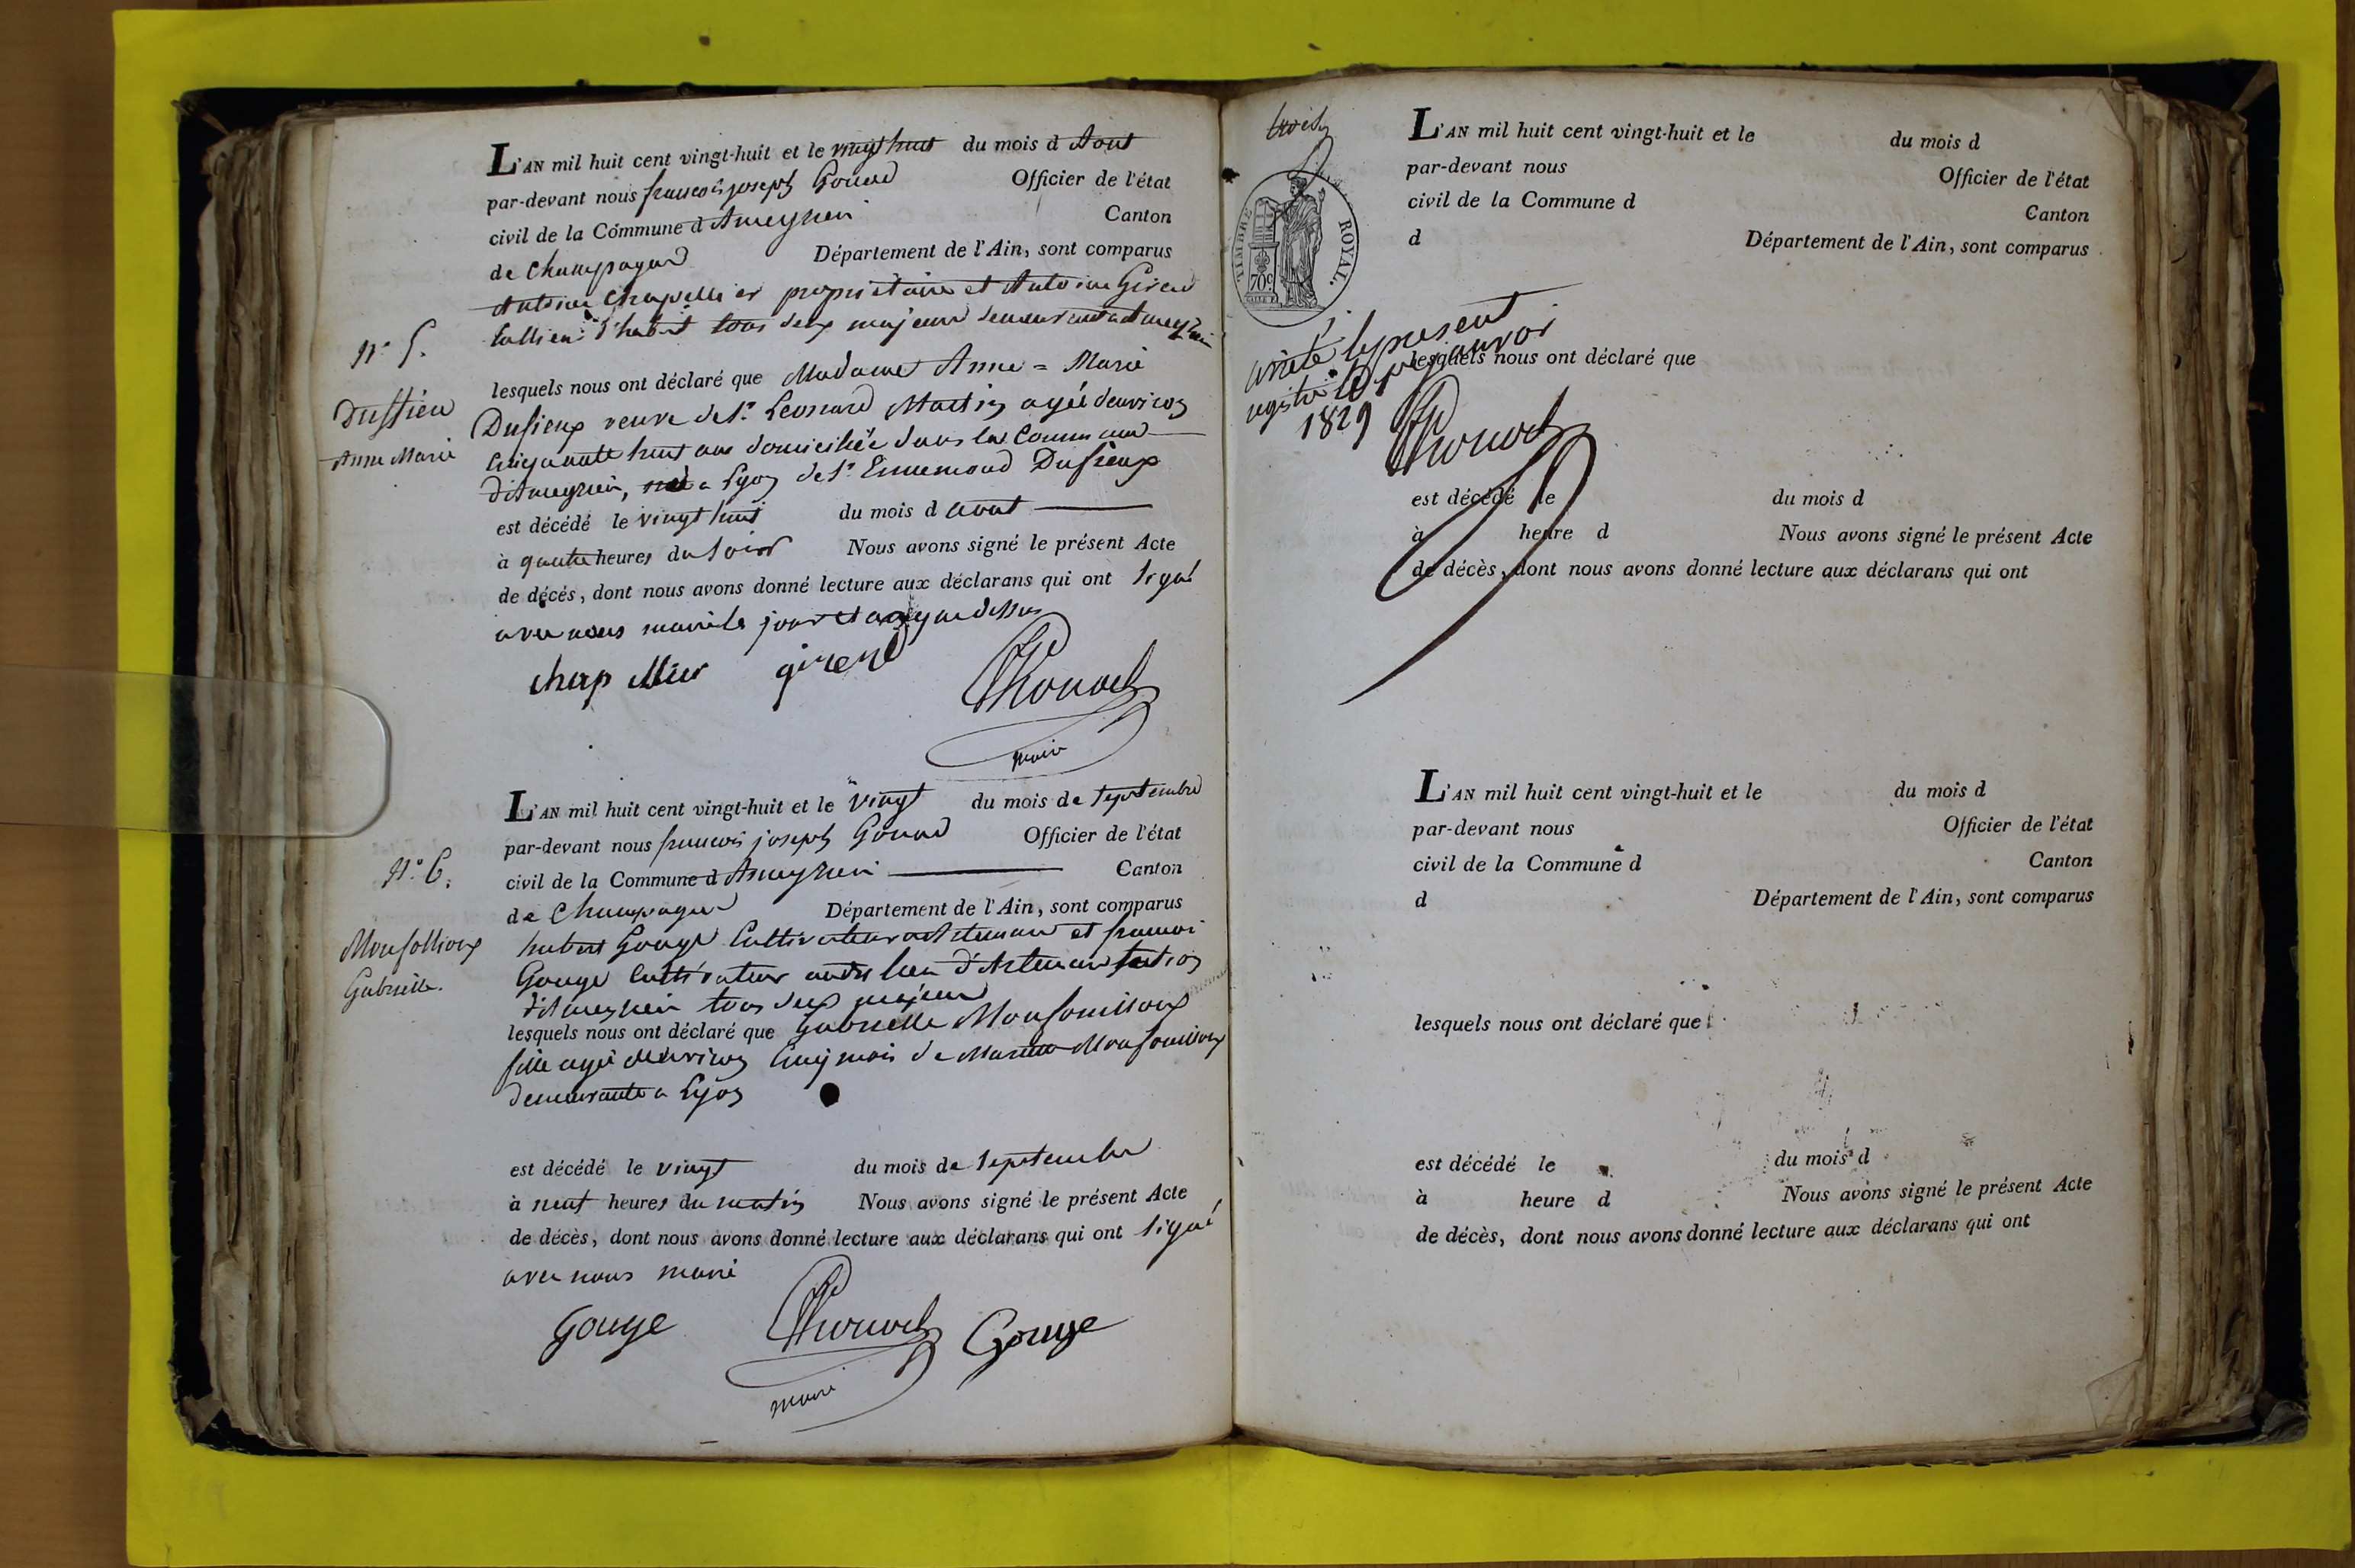 L'AN mil huit cent vingt-huit et le vingt huit du mois d Aout
par-devant nous francois joseph Gonod Officier de l'état
civil de la Commune d Ameyzieu Canton
de Champagne Département de l'Ain, sont comparus
Antoine Chapellier propriétaire et Antoine
tous deux majeurs demeurant a Ameyzieu
N° 5.
lesquels nous ont déclaré que Madame Anne = Marie
Dussieu
Dusieux veuve de Sr. Leonard Martin agée d'environ
Anne Marie
cinquante huit ans domiciliée dans la Commune
d'Ameyzieu, née a Lyon de Sr. Ennemond Dusieux
est décédé le vingt huit du mois d aout
à quatre heures du soir Nous avons signé le présent Acte
de décés, dont nous avons donné lecture aux déclarans qui ont signé
avec nous maire le jour et an que dessus
chapellier girend
maire
L'AN mil huit cent vingt-huit et le vingt du mois de septembre
par-devant nous francois joseph Gonod Officier de l'état
N° 6.
civil de la Commune d Ameyzieu Canton
de Champagne Département de l'Ain, sont comparus
Monfollioux
hubert Gouge Cultivateur a Artemare et francoi
Gabrielle.
Gouge Cultivateur audit lieu d'Artemare section
d'Ameyzieu tous deux majeurs
lesquels nous ont déclaré que Gabrielle Monfouilloux
fille agée d'environ cinq mois de Monfouilloux
demeurante a Lyon
est décédé le vingt du mois de septembre
à neuf heures du matin Nous avons signé le présent Acte
de décès, dont nous avons donné lecture aux déclarans qui ont signé
avec nous maire
Gouge Gouge
maire
TIMBRE ROYAL.
70c
L'AN mil huit cent vingt-huit et le du mois d
par-devant nous Officier de l'état
civil de la Commune d Canton
d Département de l'Ain, sont comparus
arrêté le présent
registre le 1er janvoi
1829
lesquels nous ont déclaré que
est décédé le du mois d
à heure d Nous avons signé le présent Acte
de décès, dont nous avons donné lecture aux déclarans qui ont
L'AN mil huit cent vingt-huit et le du mois d
par-devant nous Officier de l'état
civil de la Commune d Canton
d Département de l'Ain, sont comparus
lesquels nous ont déclaré que
est décédé le du mois d
à heure d Nous avons signé le présent Acte
de décès, dont nous avons donné lecture aux déclarans qui ont